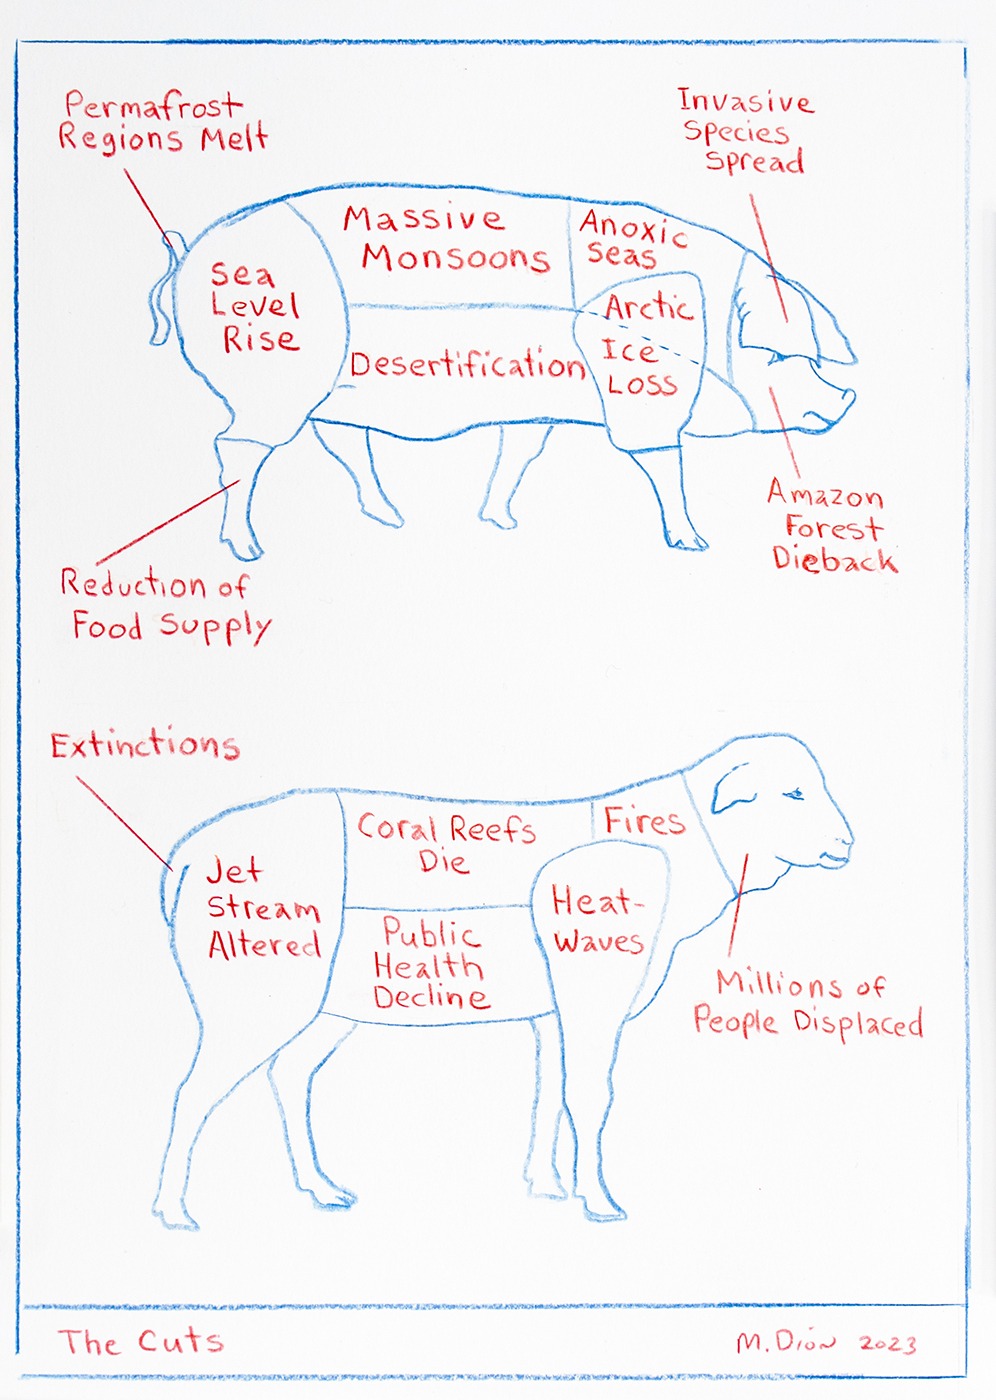 Permafrost
Regions Melt
Invasive
Species
Spread
Massive
Monsoons
Anoxic
Seas
Sea
Level
Rise
Arctic
Ice
Loss
Desertification
Amazon
Forest
Dieback
Reduction of
Food Supply
Extinctions
Coral Reefs
Die
Fires
Jet
Stream
Altered
Heat-
Waves
Public
Health
Decline
Millions of
People Displaced
The Cuts
M. Dion 2023